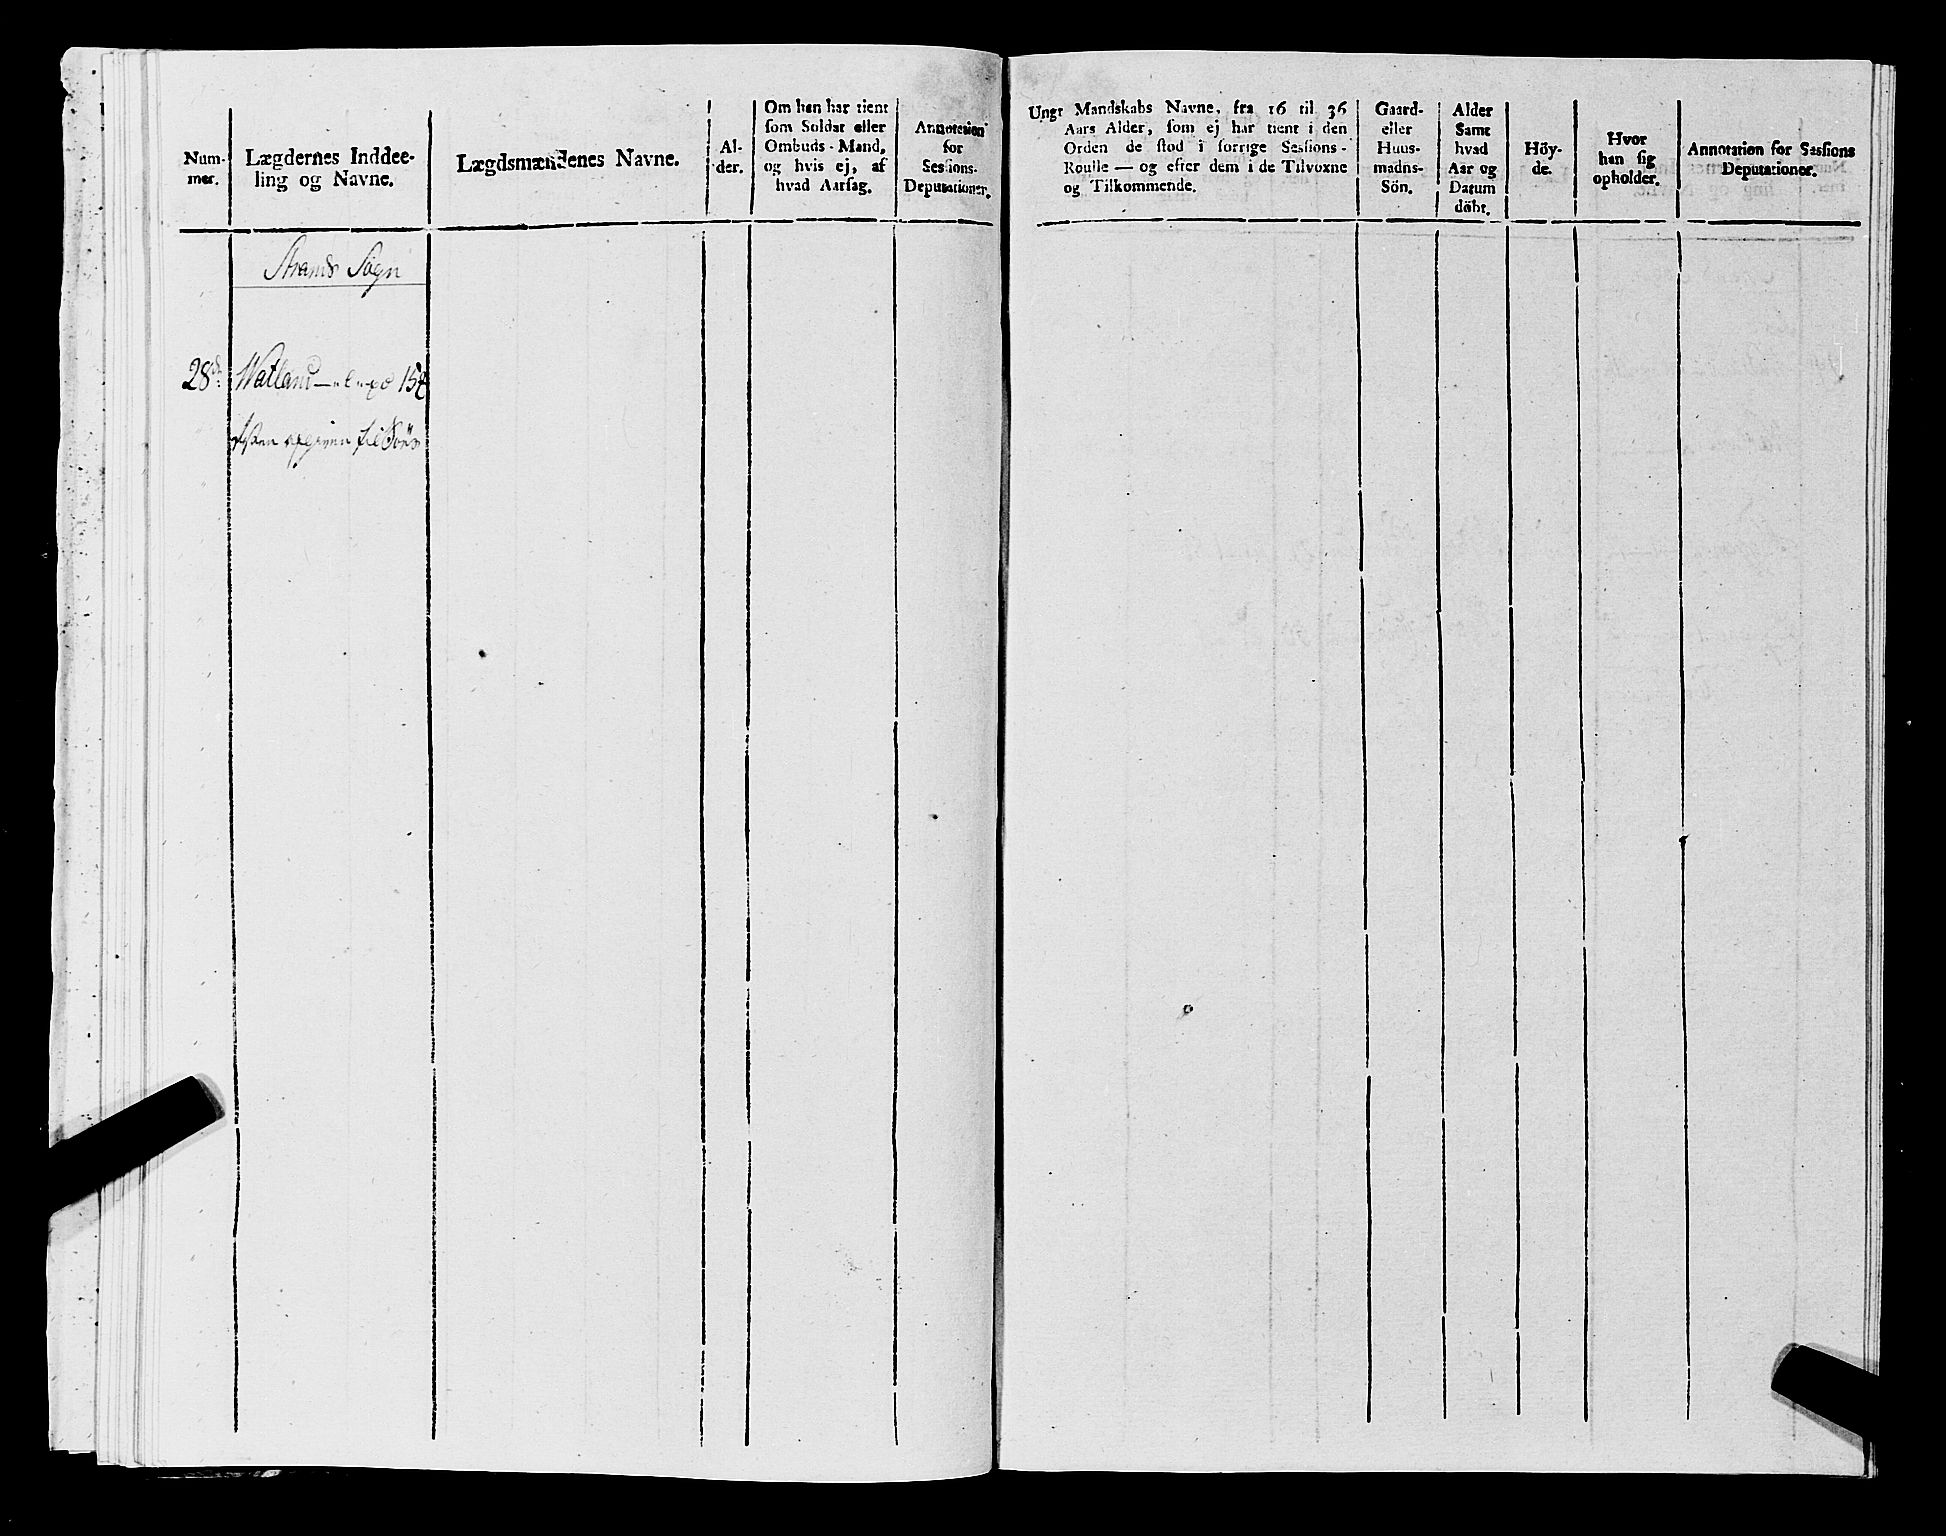 Num-
mer.
Lægdernes Inddee-
ling og Navne.
Lægdsmændenes Navne.
Al-
der.
Om han har tient
som Soldat eller
Ombuds-Mand,
og hvis ej, af
hvad Aarsag.
Annotation
for
Sessions-
Deputationer.
Strands Sogn
28de
Watland 15
til
Ungt Mandskabs Navne, fra 16 til 36
Aars Alder, som ej har tient i den
Orden de stod i forrige Sessions-
Roulle — og efter dem i de Tilvoxne
og Tilkommende.
Gaard-
eller
Huus-
madns-
Sön.
Alder
Samt
hvad
Aar og
Datum
döbt.
Höy-
de.
Hvor
han sig
opholder.
Annotation for Sessions
Deputationer.